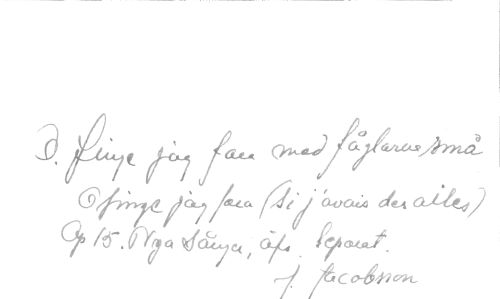 O, finge jag fara med fåglarne små
O finge jag fara (si j'avais des ailes)
Op 15. Nya Sånger, äfv. Separat.
J. Jacobsson